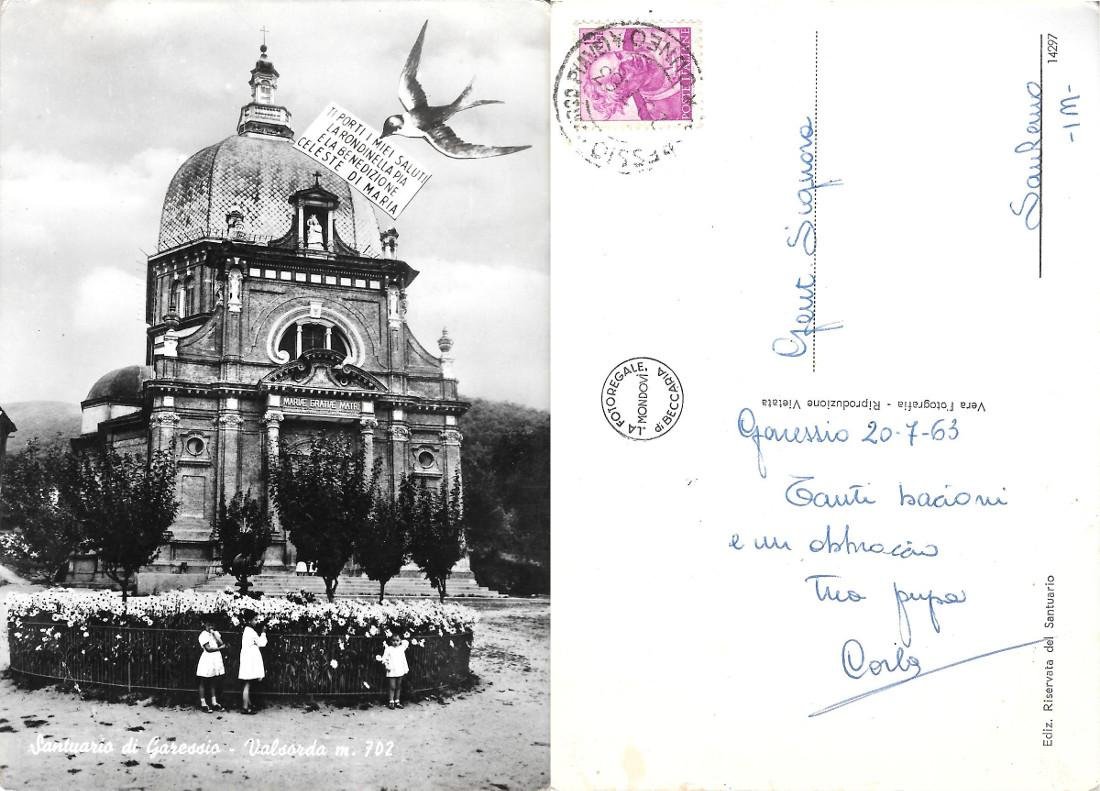 TI PORTI I MIEI SALUTI
LA RONDINELLA PIA
E LA BENEDIZIONE
CELESTE DI MARIA
MARIÆ GRATIÆ MATRI
Santuario di Garessio - Valsorda m. 702
POSTE ITALIANE
Gent Signora
SanRemo
-IM-
14297
LA FOTOREGALE
MONDOVÌ
di BECCARIA
Vera Fotografia - Riproduzione Vietata
Garessio 20-7-63
Tanti bacioni
e un abbraccio
Tua pupa
Carla
Ediz. Riservata del Santuario